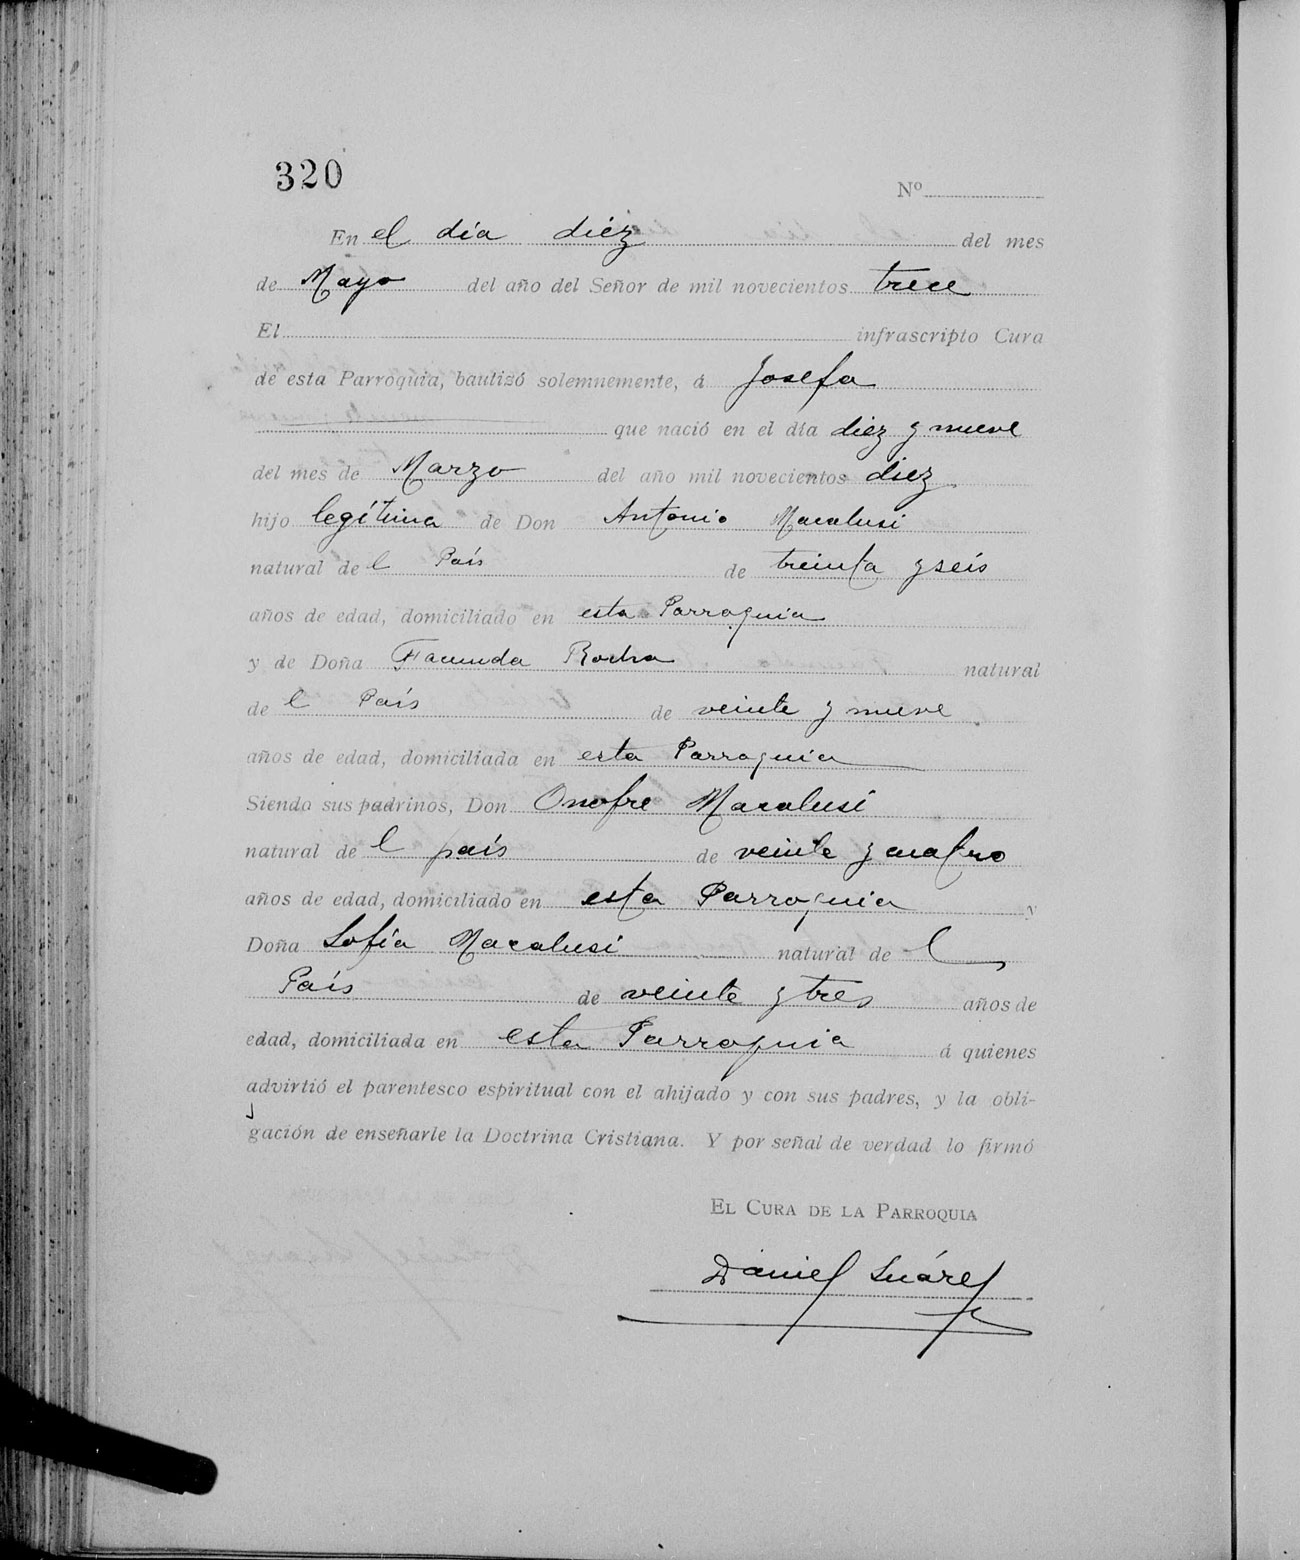 320
Nº
En el día diéz del mes
de Mayo del año del Señor de mil novecientos trece
El infrascripto Cura
de esta Parroquia, bautizó solemnemente, á Josefa
que nació en el día diez y nueve
del mes de Marzo del año mil novecientos diez
hijo legítima de Don Antonio Macalusi
natural de l País de treinta y seis
años de edad, domiciliado en esta Parroquia
y de Doña Facunda Rocha natural
de l País de veinte y nueve
años de edad, domiciliada en esta Parroquia
Siendo sus padrinos, Don Onofre Macalusi
natural de l país de veinte y cuatro
años de edad, domiciliado en esta Parroquia y
Doña Sofía Macalusi natural de l
País de veinte y tres años de
edad, domiciliada en esta Parroquia á quienes
advirtió el parentesco espiritual con el ahijado y con sus padres, y la obli-
gación de enseñarle la Doctrina Cristiana. Y por señal de verdad lo firmó
EL CURA DE LA PARROQUIA
Daniel Suárez